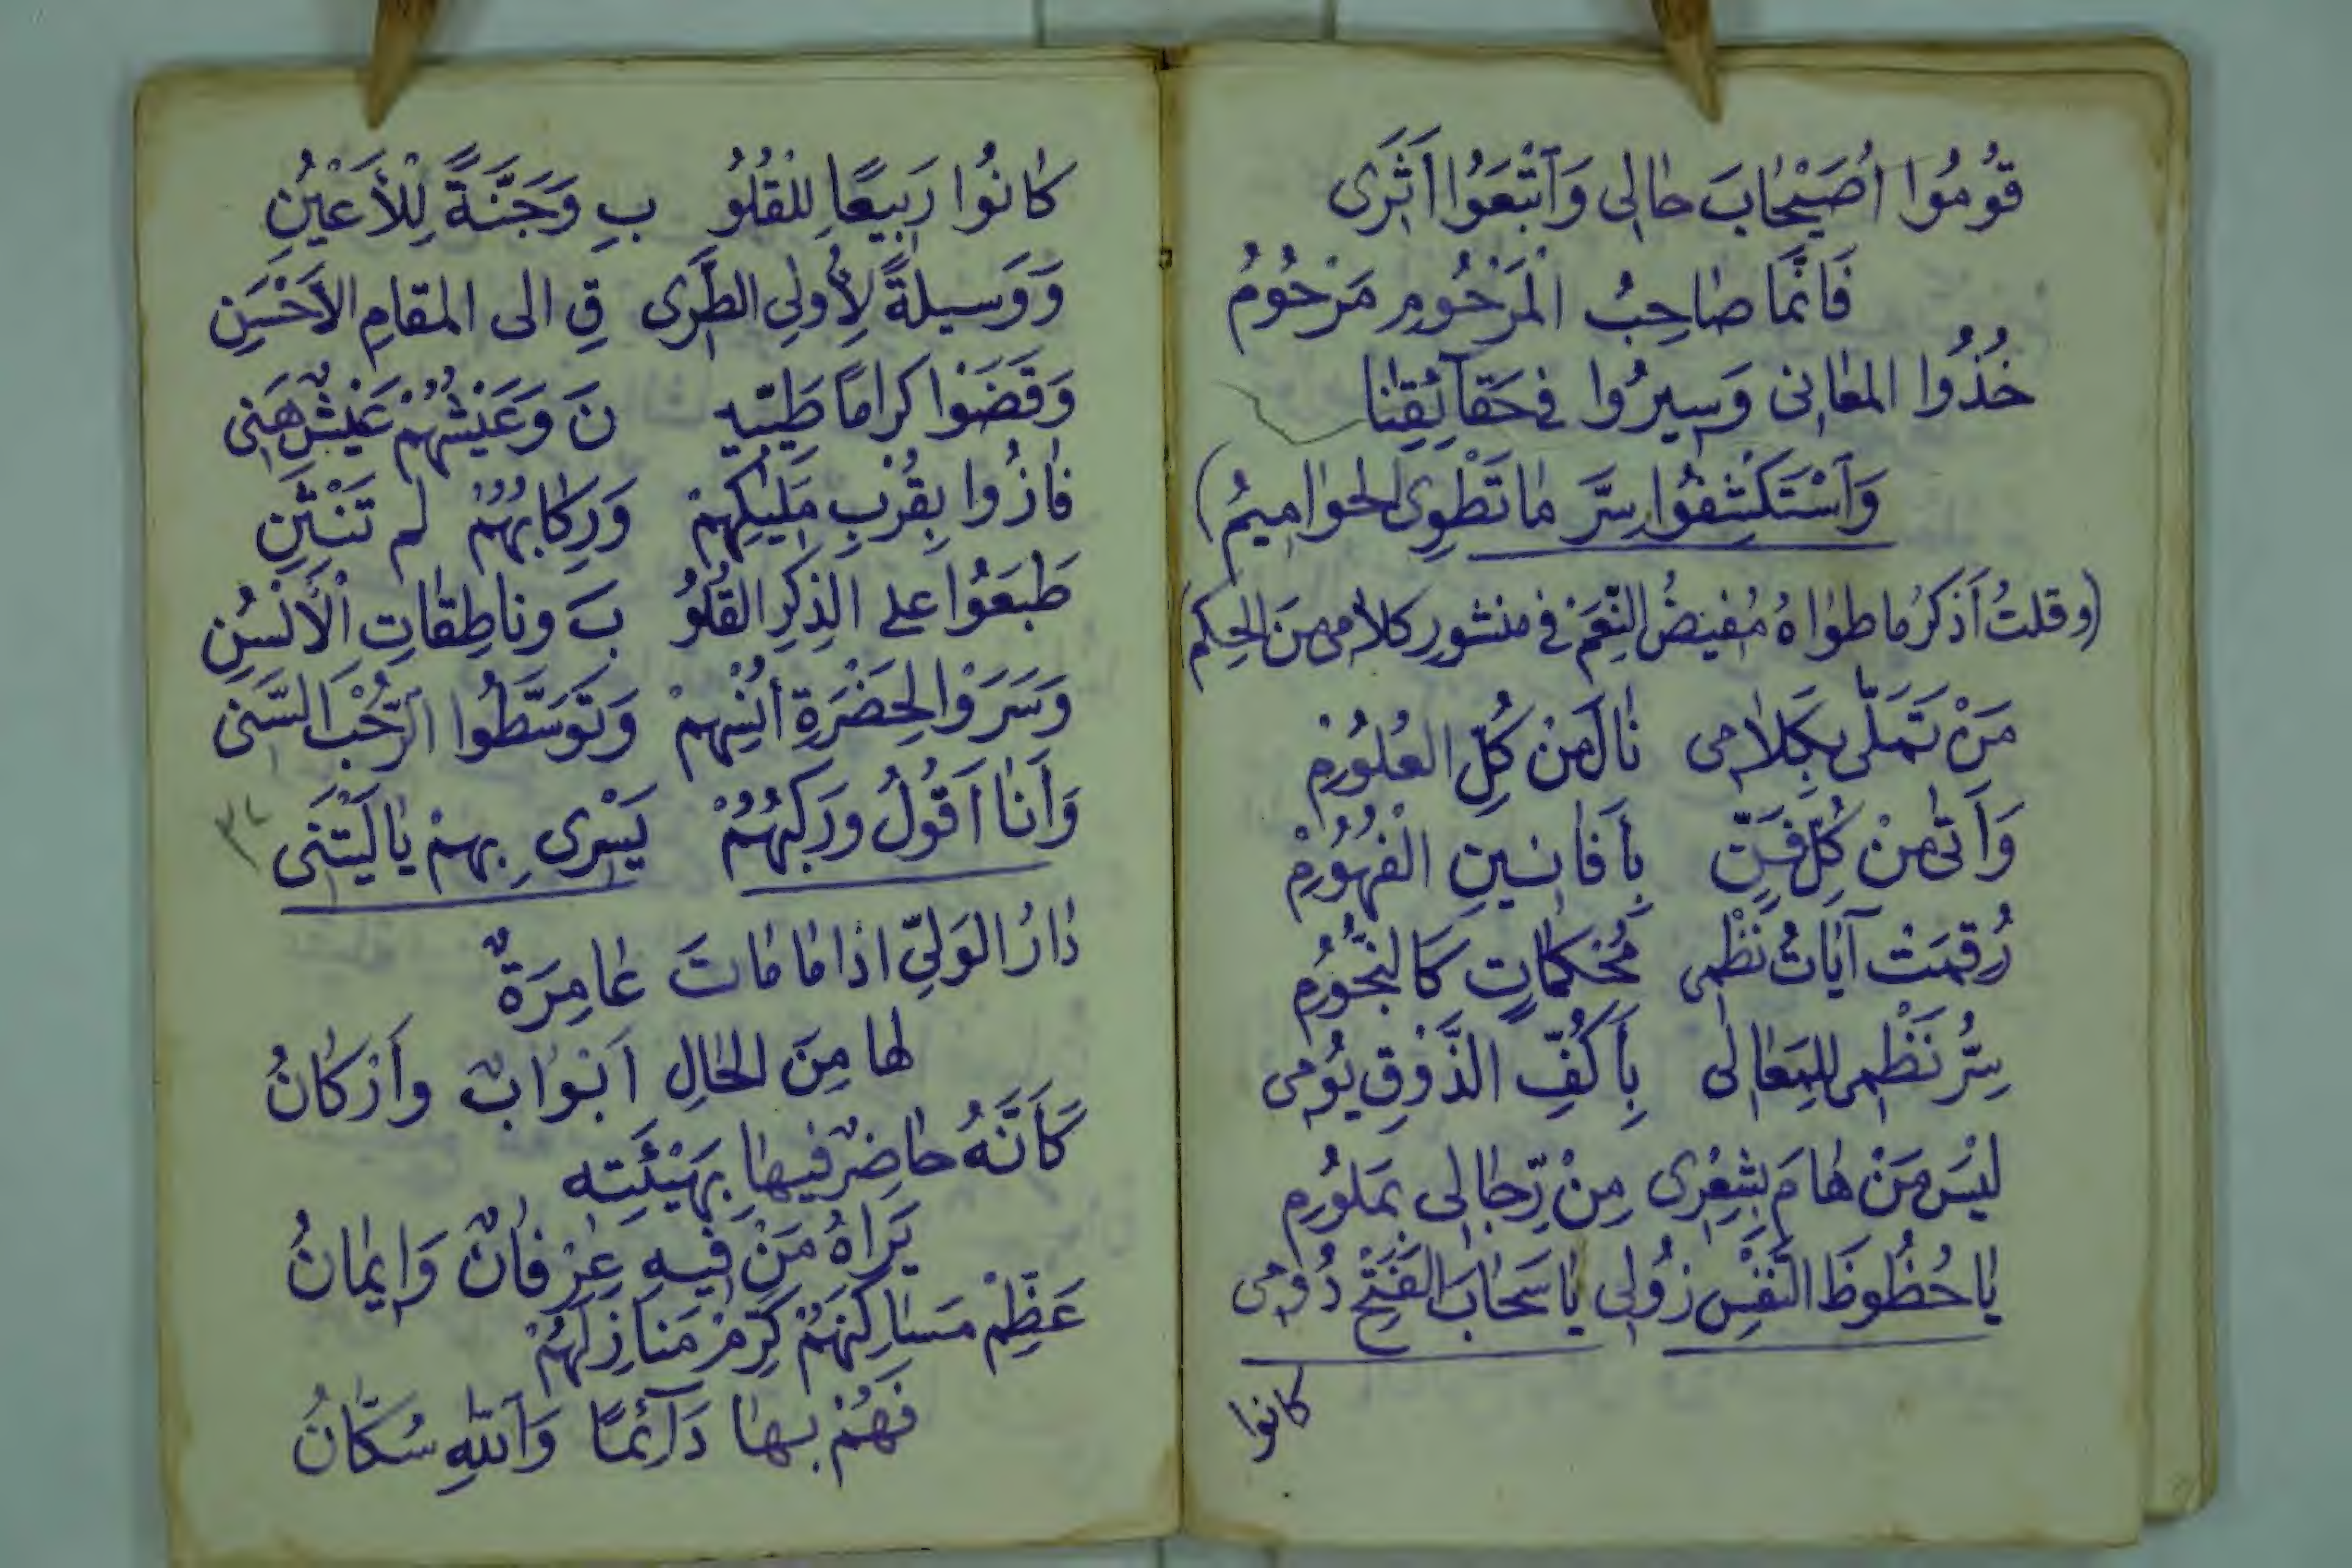 قُومُوا اُصَيْحَابَ حَالِى وَاَتْبَعُوا اَثَرِى
فَاِنَّمَا صَاحِبُ الْمَرْحُومِ مَرْحُومُ
خُذُوا المَعَانِى وَسِيرُوا فِى حَقَآئِقِنَا
وَاَسْتَكْشِفُوا سِرَّ مَا تَطْوِى الحَوَامِيمُ)
(وقلتُ اَذكرُ ما طَوَاهُ مُفِيضُ النِّعَمْ فى منشورِ كلامى مِنَ الحِكَم)
مَنْ تَمَلَّى بِكَلَامِى نَالَ مِنْ كُلِّ العُلُومِ
وَاَتَى مِنْ كُلِّ فَنٍّ بِأَفَانِينِ الْفُهُومِ
رُقِمَتْ آيَاتُ نَظْمِى مُحْكَمَاتٍ كَالنُّجُومِ
سِرُّ نَظْمِى لِلمَعَالِى بِأَكُفِّ الذَّوْقِ يُومِى
لَيْسَ مَنْ هَامَ بِشِعْرِى مِنْ رِّجَالِى بِمَلُومِ
يَا حُظُوظَ النَّفْسِ زُولِى يَا سَحَابَ الفَتْحِ دُومِى
كانوا
كَانُوا رَبِيعًا لِلْقُلُو بِ وَجَنَّةً لِلْأَعْيُنِ
وَوَسيلةً لِأُولِى الطَّرِى قِ الى المقامِ الاَحْسَنِ
وَقَضَوْا كرامًا طَيِّبِيـ نَ وَعَيْشُهُمْ عَيْشٌ هَنِى
فَازُوا بِقُرْبِ مَلِيكِهِمْ وَرِكَابُهُمْ لم تَنْثَنِ
طَبَعُوا على الذِكرِ القُلُو بَ وناطِقَاتِ الْاَلْسُنِ
وَسَرَوْا لِحَضْرَةِ اُنْسِهِمْ وَتَوَسَّطُوا الرَّحْبَ السَّنِى
وَاَنَا اَقُولُ وَرَكْبُهُمْ يَسْرِى بِهِمْ يَا لَيْتَنِى
دَارُ الوَلِىِّ اذا مَا مَاتَ عَامِرَةٌ
لها مِنَ الحَالِ اَبْوَابٌ وَاَرْكَانُ
كَأَنَّهُ حَاضِرٌ فِيهَا بِهَيْئَتِهِ
يَرَاهُ مَنْ فِيهِ عِرْفَانٌ وَاِيمَانُ
عَظِّمْ مَسَاكِنَهُمْ كَرِّمْ مَنَازِلَهُمْ
فَهُمْ بِهَا دَآئِمًا وَاَللهِ سُكَّانُ